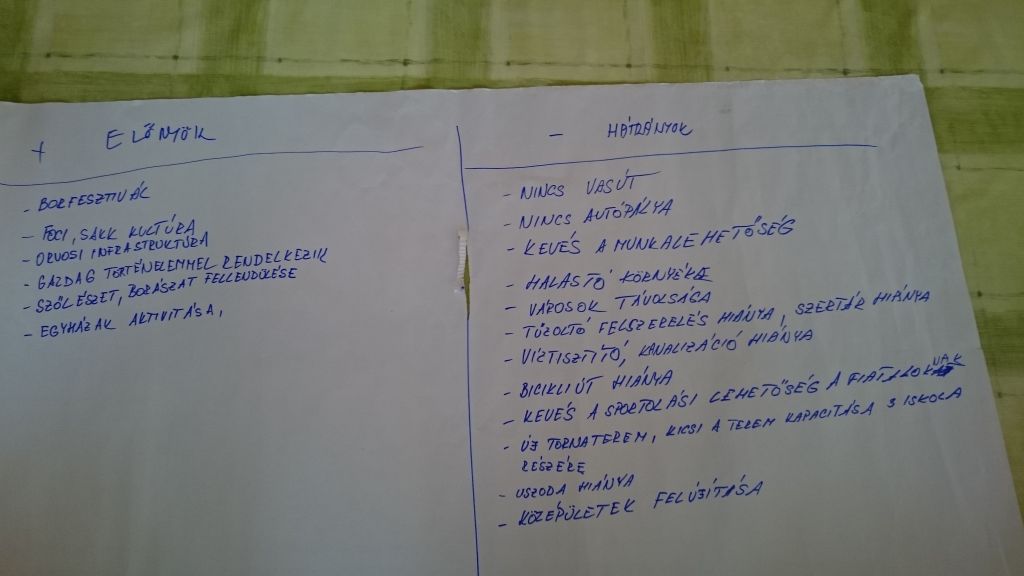 + ELŐNYÖK
- BORFESZTIVÁL
- FOCI, SAKK KULTÚRA
- ORVOSI INFRASTRUKTÚRA
- GAZDAG TÖRTÉNELEMMEL RENDELKEZIK
- SZŐLÉSZET, BORÁSZAT FELLENDÜLÉSE
- EGYHÁZAK AKTIVITÁSA,
- HÁTRÁNYOK
- NINCS VASÚT
- NINCS AUTÓPÁLYA
- KEVÉS A MUNKALEHETŐSÉG
- HALASTÓ KÖRNYÉKE
- VÁROSOK TÁVOLSÁGA
- TŰZOLTÓ FELSZERELÉS HIÁNYA, SZERTÁR HIÁNYA
- VÍZTISZTÍTÓ, KANALIZÁCIÓ HIÁNYA
- BICIKLI ÚT HIÁNYA
- KEVÉS A SPORTOLÁSI LEHETŐSÉG A FIATALOKNAK
- ÚJ TORNATEREM, KICSI A TEREM KAPACITÁSA 3 ISKOLA
RÉSZÉRE
- USZODA HIÁNYA
- KÖZÉPÜLETEK FELÚJÍTÁSA